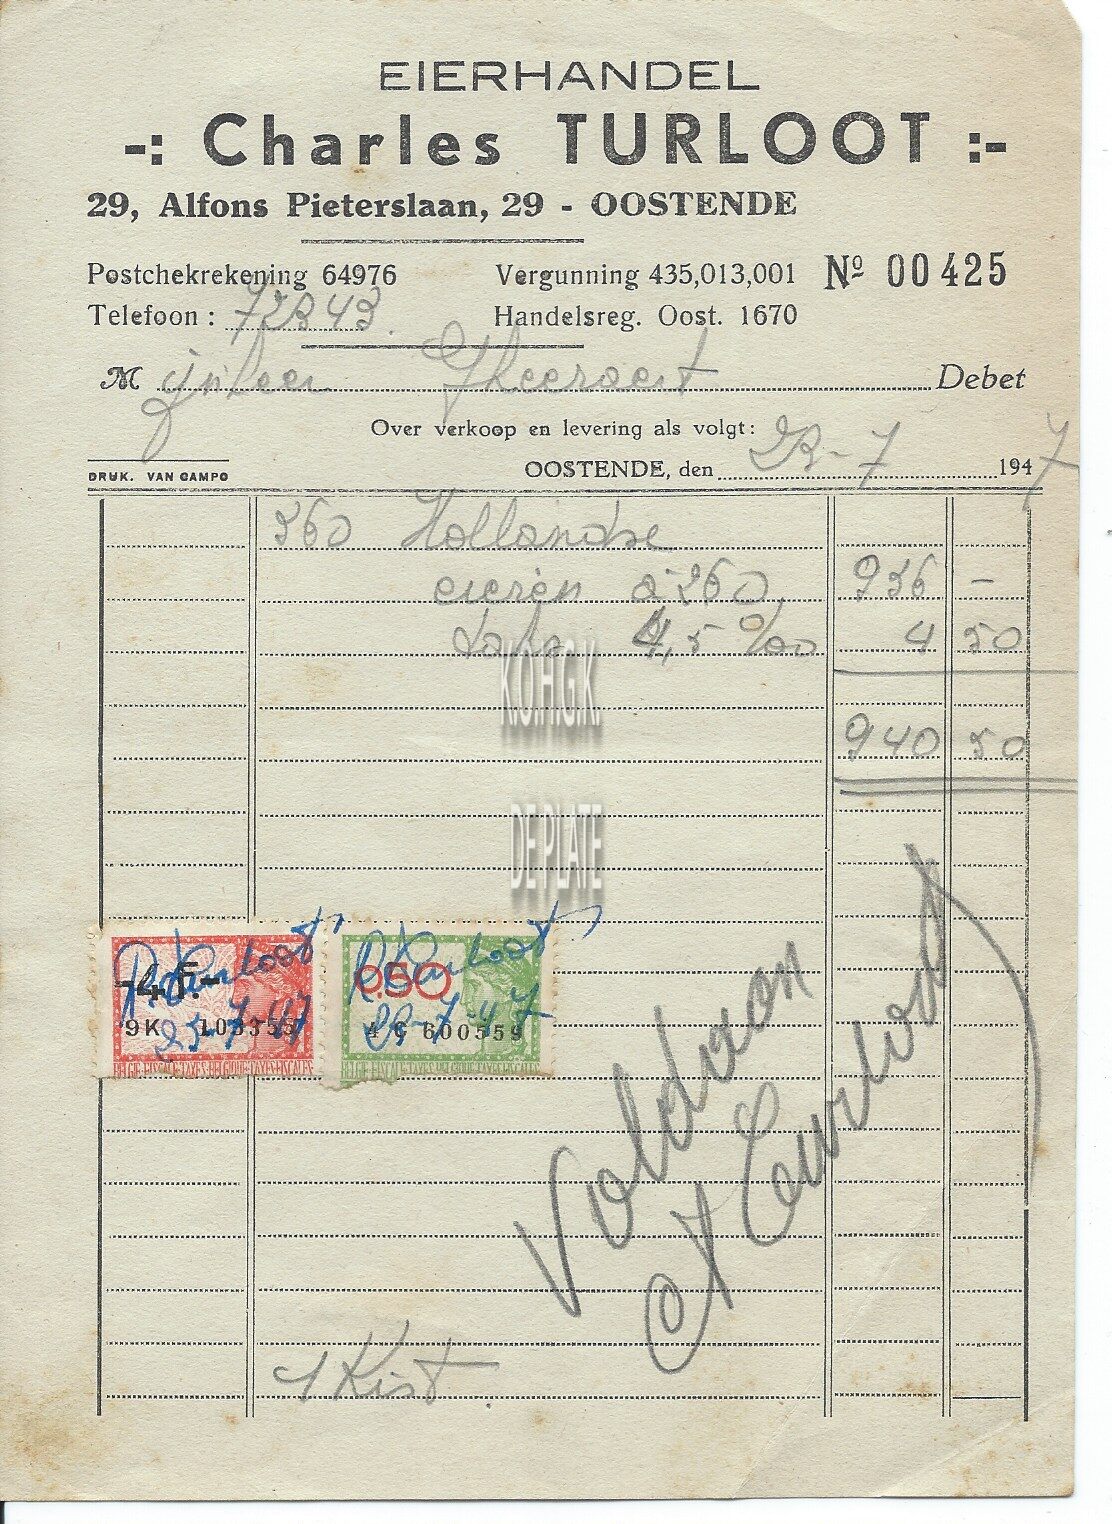 EIERHANDEL
-: Charles TURLOOT :-
29, Alfons Pieterslaan, 29 - OOSTENDE
Postchekrekening 64976 Vergunning 435,013,001 Nº 00425
Telefoon : 72343. Handelsreg. Oost. 1670
Mijnheer Gheeraert Debet
Over verkoop en levering als volgt:
DRUK. VAN CAMPO OOSTENDE, den 7 1947
360 Hollandse
eieren à 260 936 -
4,5 %00 4 50
K.O.H.G.K.
940 50
DE PLATE
-4 F.-
9K 103355
0.50
4G 600559
BELGIE-FISCALE-TAXES BELGIQUE-TAXES FISCALES
BELGIE-FISCALE-TAXES BELGIQUE-TAXES FISCALES
Voldaan
Turloot
1 Kist